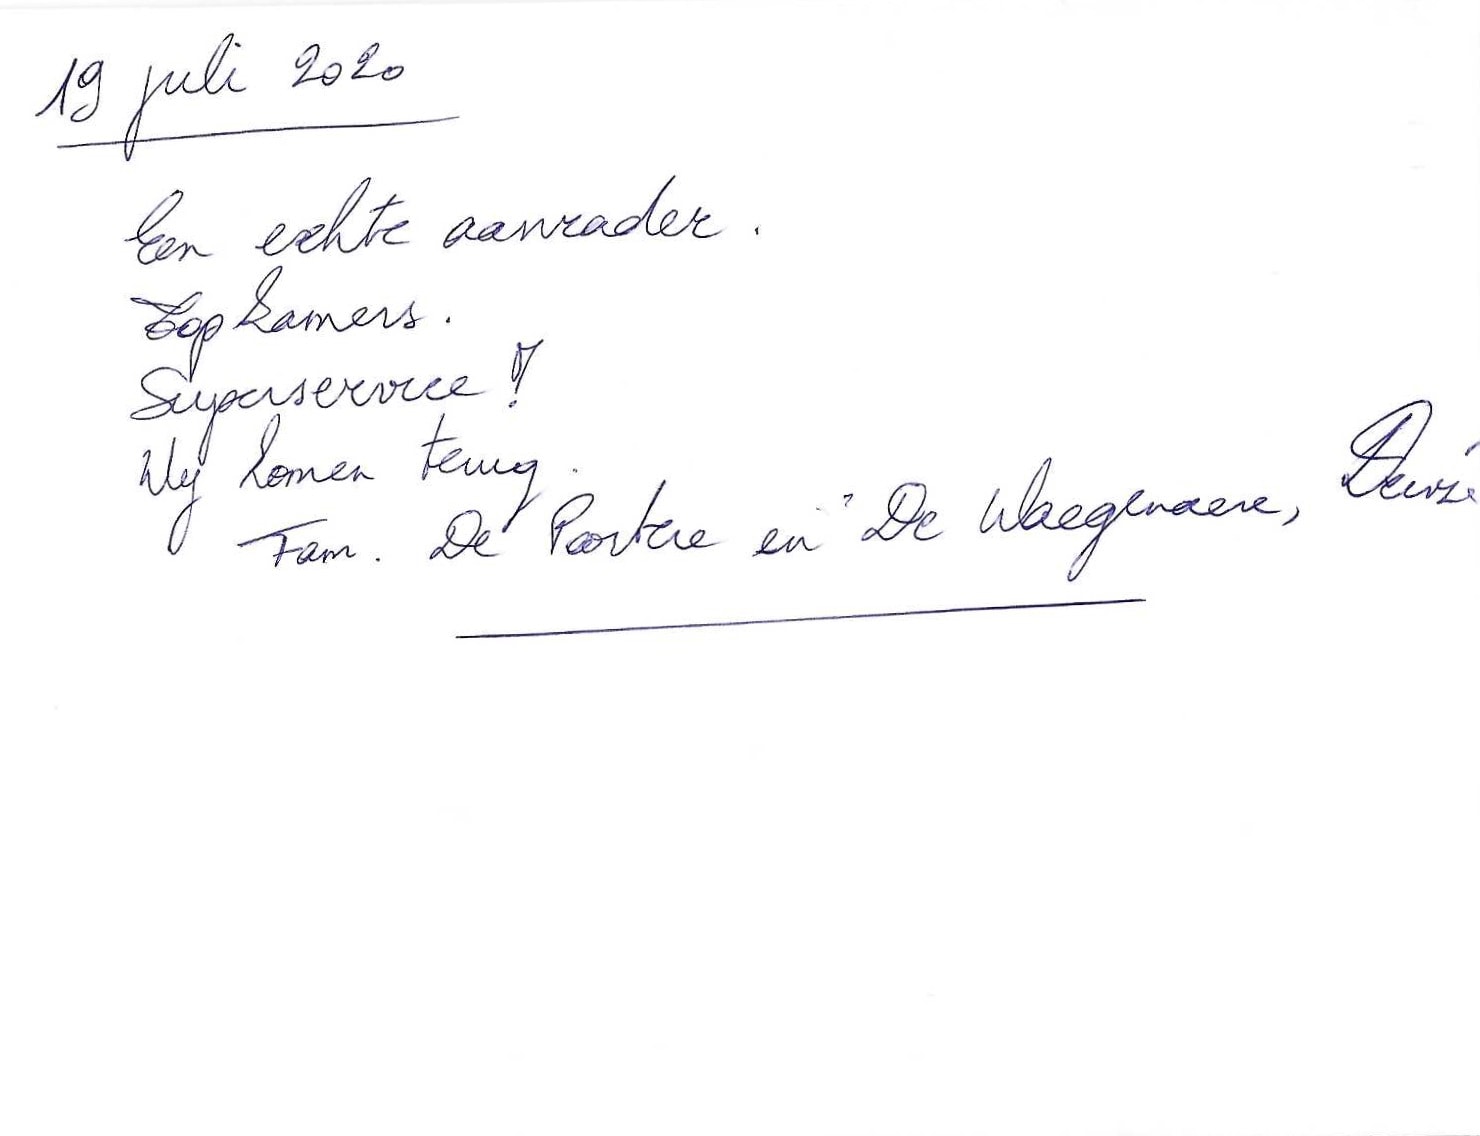 19 juli 2020
Een echte aanrader.
Topkamers.
Superservice!
Wij komen terug.
Fam. De Poortere en De Waegenaere,